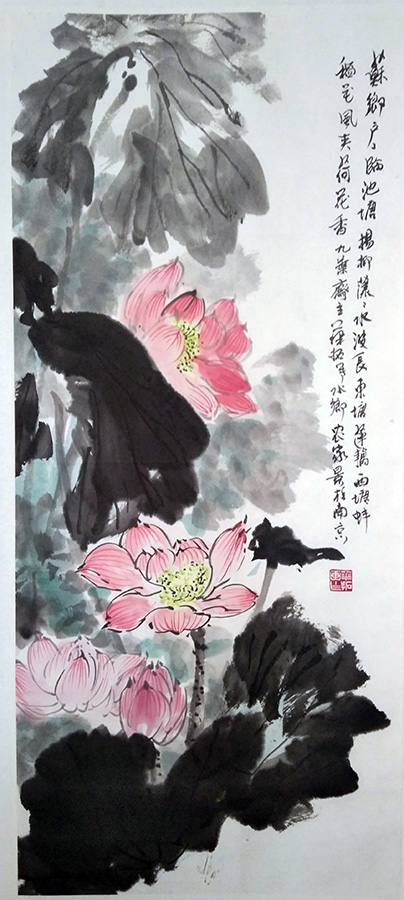 蘇鄉户户臨池塘楊柳蔭〻水波長東塘蓮藕西塘蚌
稻花風夾荷花香九葉齋主写水鄉农家景於南京